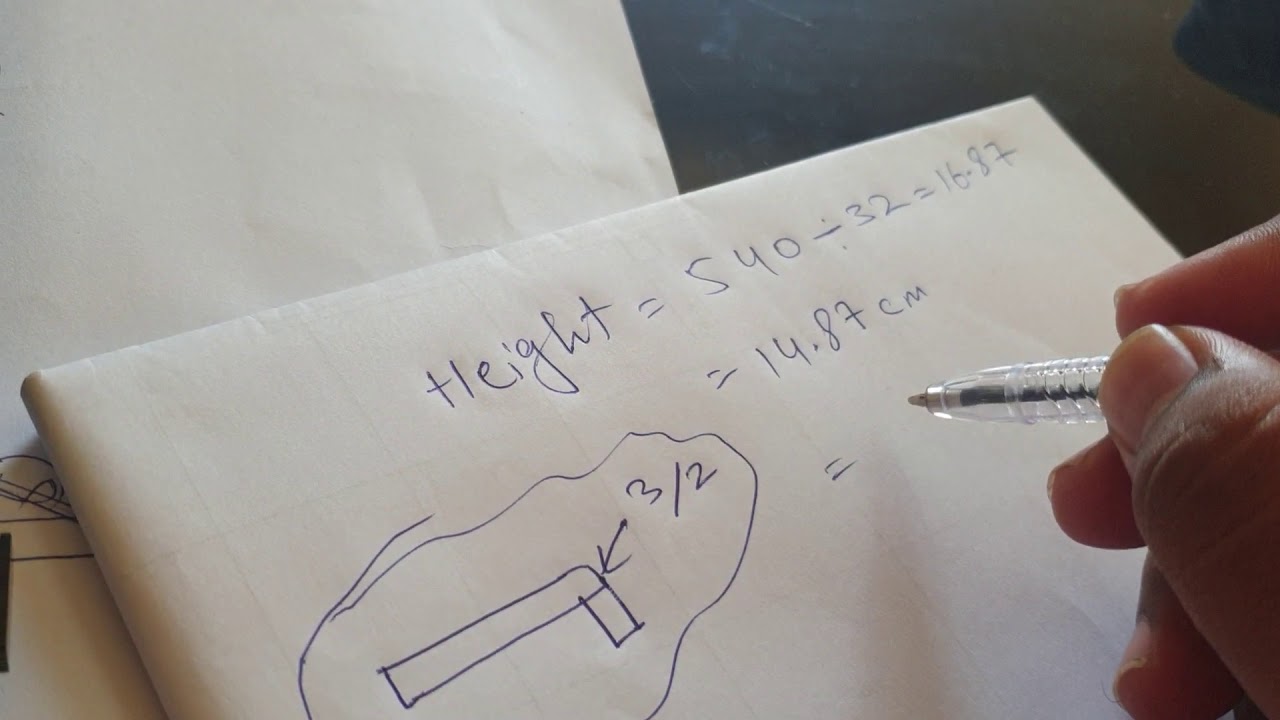 Height = 540 ÷ 32 = 16.87
= 14.87 cm
=
3/2